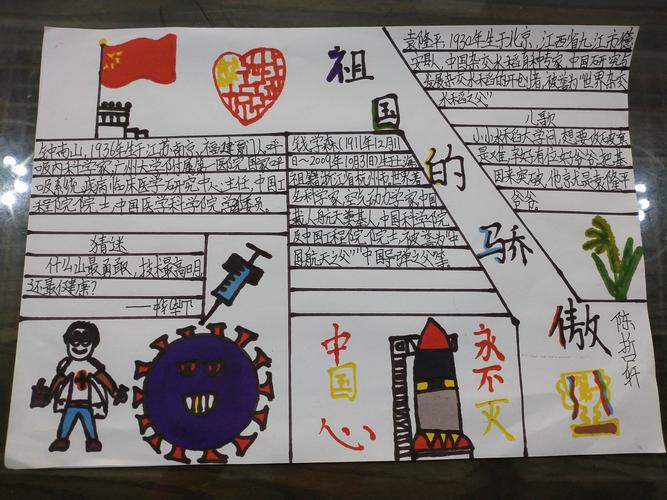 祖
国
的
骄
傲
袁隆平,1930年生于北京,江西省九江市德
安县人,中国杂交水稻育种专家,中国研究与
发展杂交水稻的开创者,被誉为“世界杂交
水稻之父”
小歌
小小水稻大学问,想要
是难,幸好有位好爷爷,把基
因来突破,他就是袁隆平
爷爷
钟南山,1936年生于江苏南京,福建厦门人,呼
吸内科学家,广州大学附属第一医院国家呼
吸系统疾病临床医学研究中心主任,中国工
程院院士,中国医学科学院委员。
钱学森(1911年12月11
日~2009年10月31日)生于上海
祖籍浙江省杭州市,世界著
名科学家,空气动力学家,中国
载人航天奠基人,中国科学院
及中国工程院院士,被誉为“中
国航天之父”“中国导弹之父”等
猜迷
什么山最勇敢,技术最高明
还最保健康?
中
国
心
永
不
灭
陈
轩